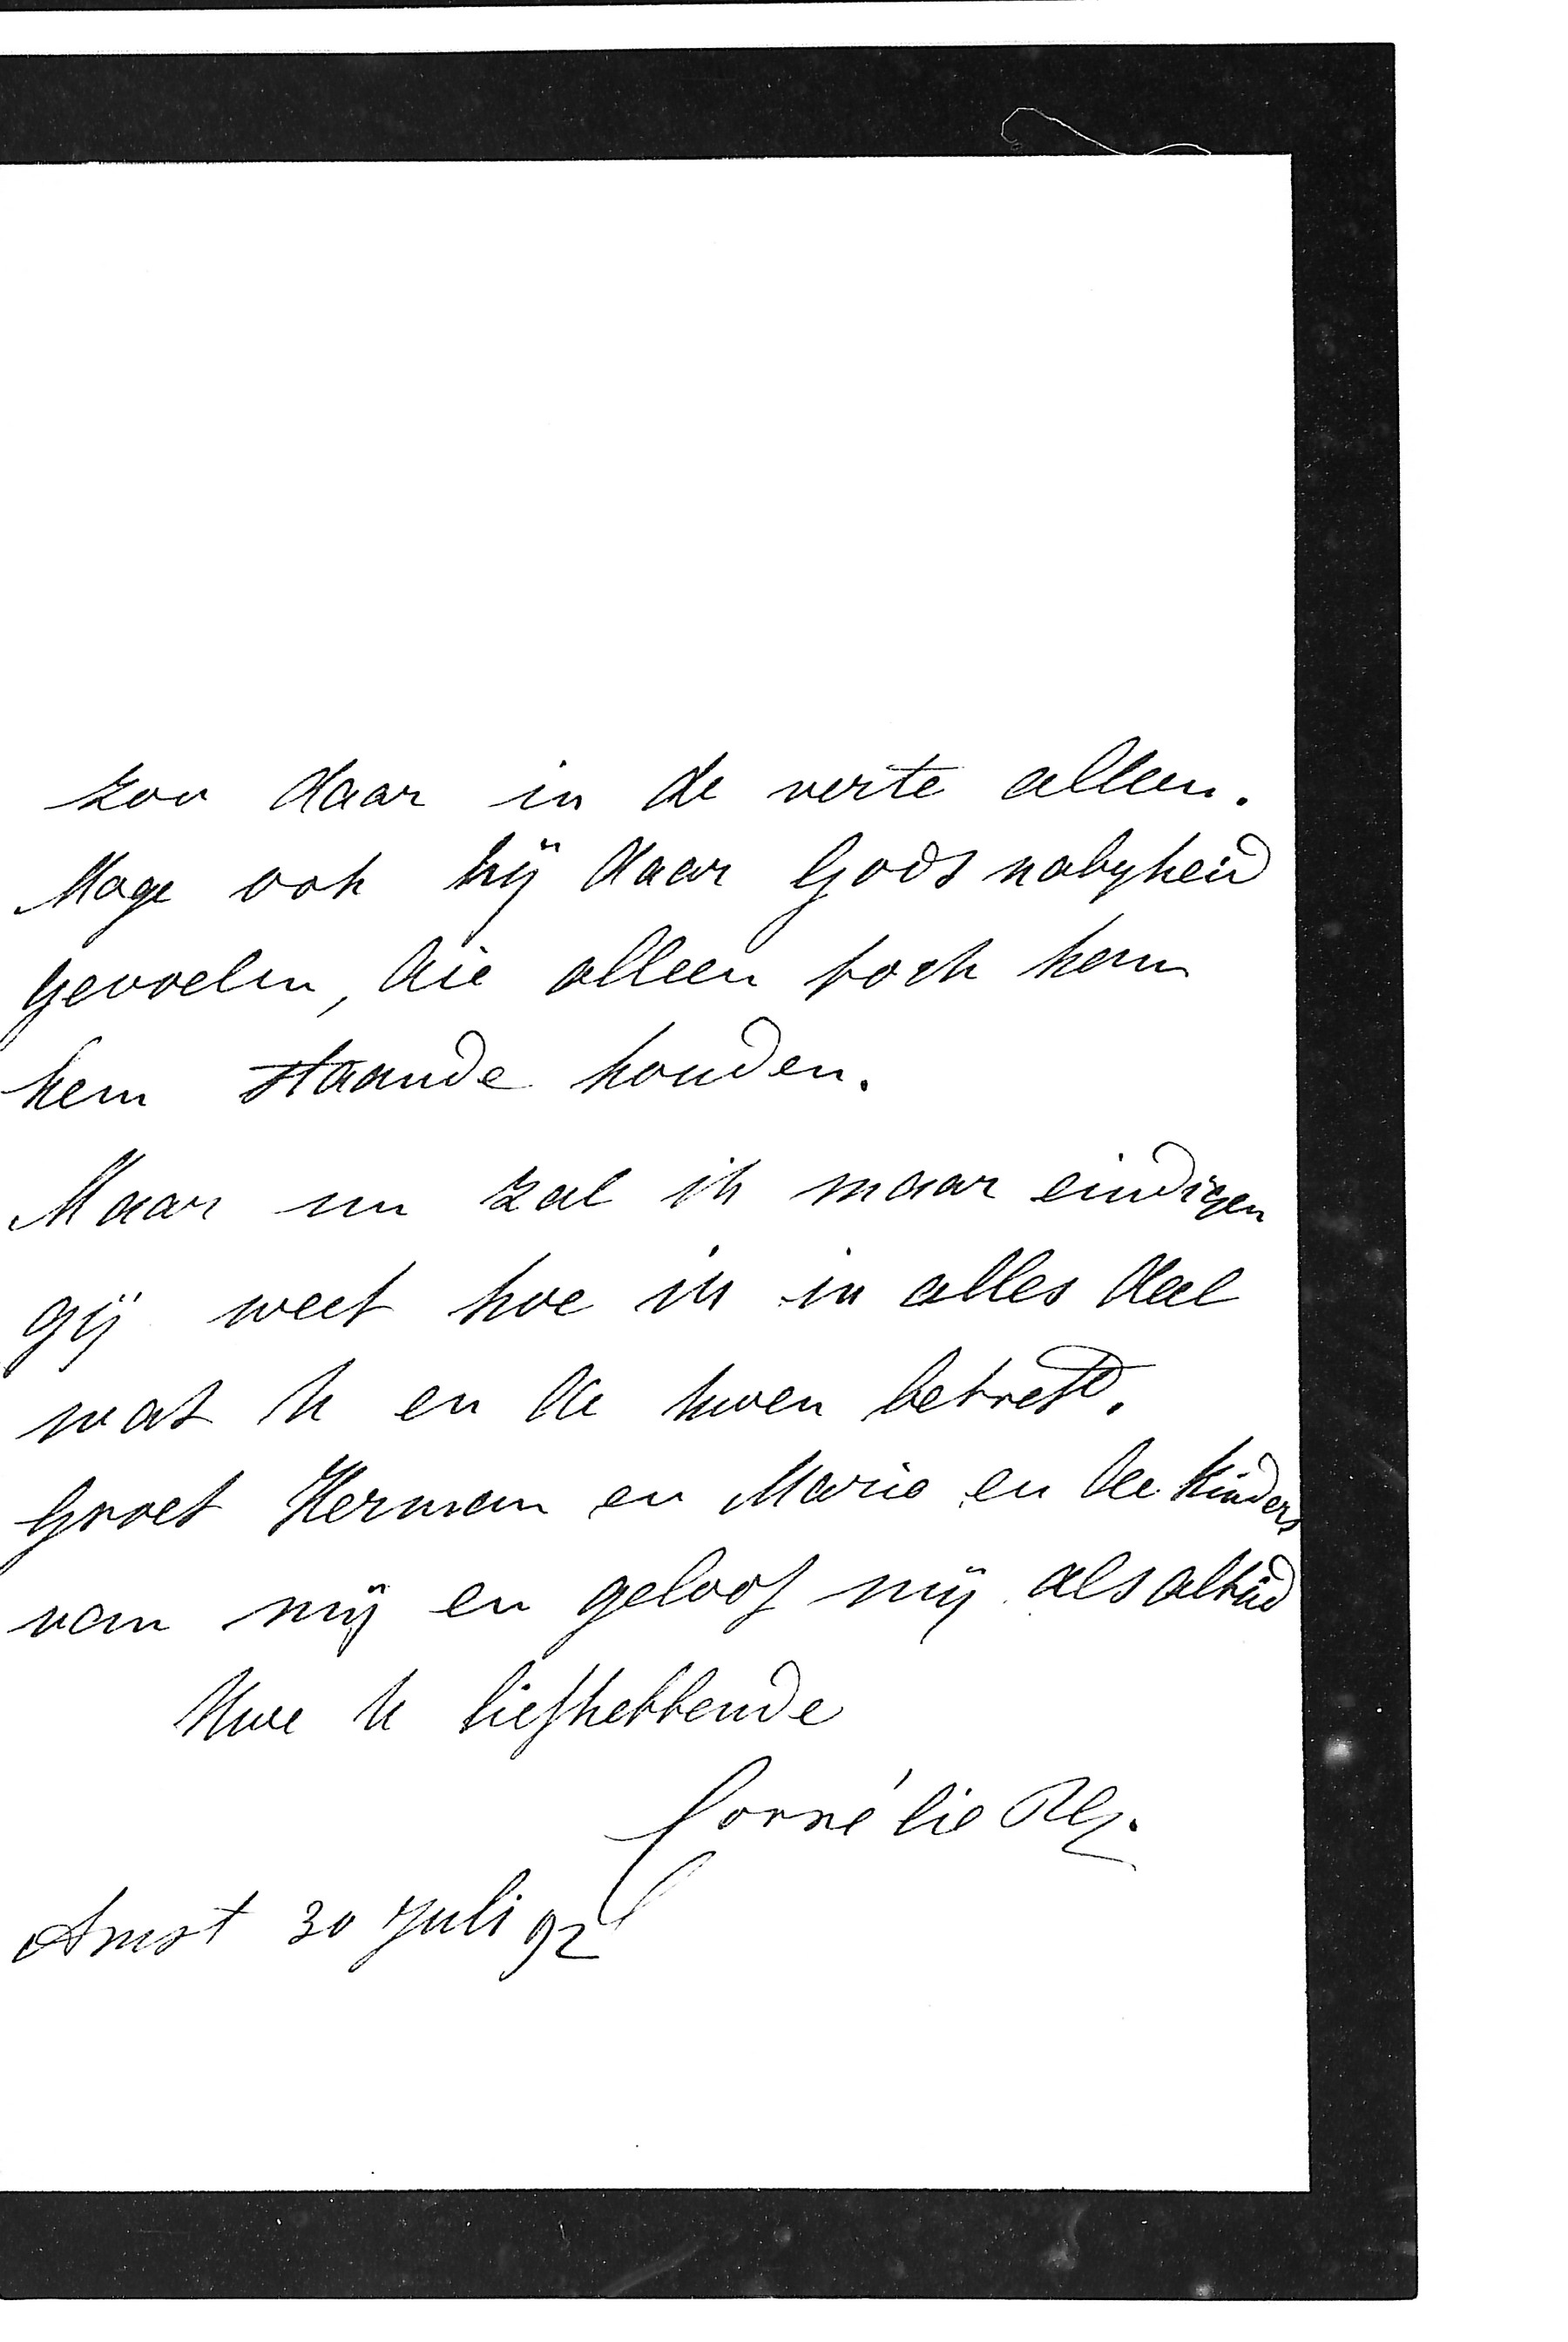 zoo daar in de verte alleen.
Moge ook hij daar Gods nabijheid
gevoelen, die alleen toch kan
hem staande houden.
Maar nu zal ik maar eindigen
gij weet hoe ik in alles deel
wat U en de uwen betreft.
Groet Herman en Marie en de kinders
van mij en geloof mij als altijd
Uwe U liefhebbende
Cornélie
Amst 30 Juli 92